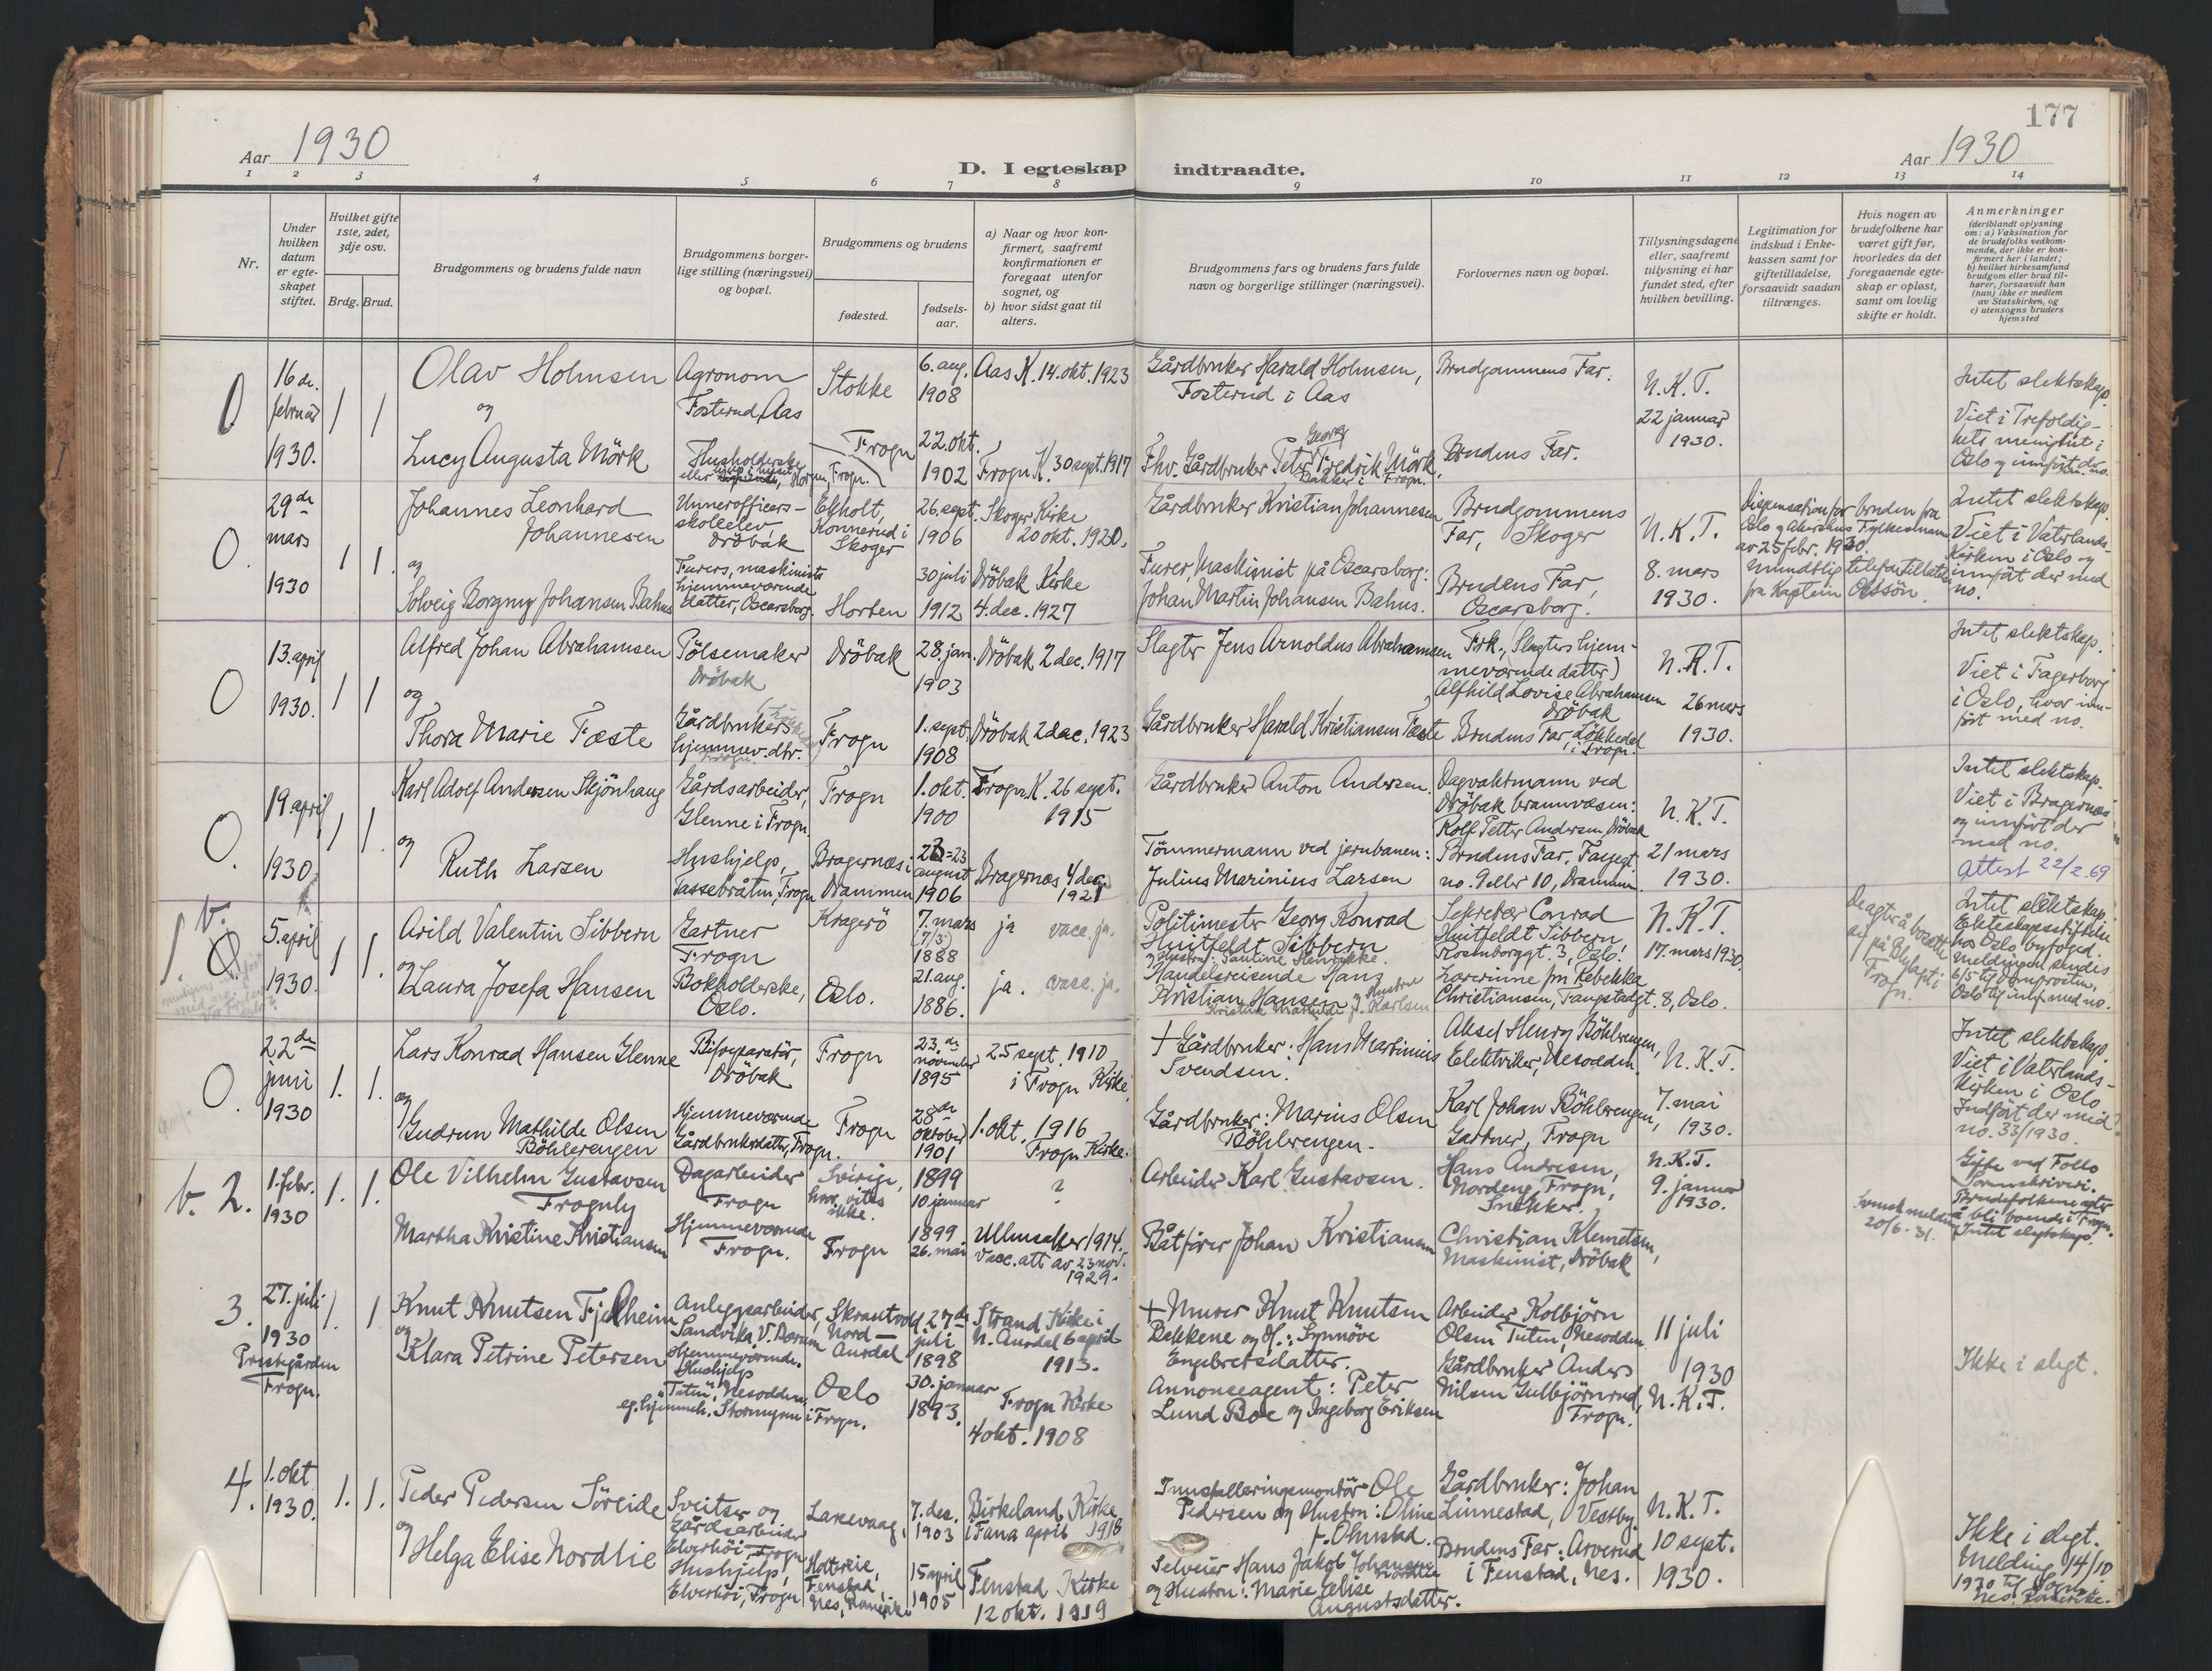 177
Aar 1930
D. I egteskap indtraadte.
Aar 1930
1 2 3 4 5 6 7 8 9 10 11 12 13 14
Nr.
Under hvilken datum er egteskapet stiftet.
Hvilket gifte 1ste, 2det, 3dje osv.
Brdg. Brud.
Brudgommens og brudens fulde navn
Brudgommens borgerlige stilling (næringsvei) og bopæl.
Brudgommens og brudens
fødested.
fødselsaar.
a) Naar og hvor konfirmert, saafremt konfirmationen er foregaat utenfor sognet, og
b) hvor sidst gaat til alters.
Brudgommens fars og brudens fars fulde navn og borgerlige stillinger (næringsvei).
Forlovernes navn og bopæl.
Tillysningsdagene eller, saafremt tillysning ei har fundet sted, efter hvilken bevilling.
Legitimation for indskud i Enkekassen samt for giftetilladelse, forsaavidt saadan tiltrænges.
Hvis nogen av brudefolkene har været gift før, hvorledes da det foregaaende egteskap er opløst, samt om lovlig skifte er holdt.
Anmerkninger
(deriblandt oplysning om: a) Vaksination for de brudefolks vedkommende, der ikke er konfirmert her i landet;
b) hvilket kirkesamfund brudgom eller brud tilhører, forsaavidt han (hun) ikke er medlem av Statskirken, og
c) utensogns bruders hjemsted
0
16de februar 1930.
1 1
Olav Holmsen
og
Lucy Augusta Mörk
Agronom
Fosterud, Aas
Husholderske
Stokke
Frogn
6. aug. 1908
22. okt. 1902
Aas K. 14. okt. 1923
Frogn K. 30 sept. 1917
Gårdbruker Harald Holmsen,
Fosterud i Aas
Fhv. Gårdbruker Peter Georg Fredrik Mörk,
Bakker i Frogn.
Brudgommens Far.
Brudens Far.
N.K.T.
22 januar
1930.
Intet slektskap.
Viet i Trefoldighets menighet i
Oslo og innført der
0.
29de mars 1930
1 1.
Johannes Leonhard
Johannesen
og
Solveig Borgny Johansen Bahus
Unnerofficers-
skoleelev
Dröbak
Furers, maskinists
hjemmeværende
datter, Oscarsborg.
Ekholt,
Konnerud i
Skoger
Horten
26. sept. 1906
30 juli 1912
Skoger Kirke
20 okt. 1920.
Dröbak Kirke
4. dec. 1927
Gårdbruker Kristian Johannesen
Furer, Maskinist på Oscarsborg:
Johan Martin Johansen Bahus.
Brudgommens
Far, Skoger
Brudens Far,
Oscarsborg.
N.K.T.
8. mars
1930.
Dispensation for bruden fra
Oslo og Akershus Fylkesmann
av 25 febr. 1930.
Mundtlig
fra Kaptein
Intet slektskap.
Viet i Vaterlands-
Kirken i Oslo og
innført der med
no.
0
13. april 1930.
1 1
Alfred Johan Abrahamsen
og
Thora Marie Fæste
Pölsemaker
Dröbak
Gårdbrukers
hjemmev. dtr.
Dröbak
Frogn
28. jan. 1903
1. sept. 1908
Dröbak 2 dec. 1917
Dröbak 2 dec. 1923
Slagter Jens Arnoldus Abrahamsen
Gårdbruker Harald Kristiansen Fæste
Frk., (Slagters hjem-
meværende datter)
Alfhild Lovise Abrahamsen
Dröbak
Brudens Far, Lökkedal
i Frogn.
N.K.T.
26 mars
1930.
Intet slektskap.
Viet i Fagerborg
i Oslo, hvor inn-
ført med no.
0.
19 april 1930
1 1.
Karl Adolf Andersen Skjönhaug
og
Ruth Larsen
Gårdsarbeider,
Glenne i Frogn.
Hushjelp,
Tassebråten, Frogn
Frogn
Bragernæs i
Drammen
1. okt. 1900
23 = 23 august 1906
Frogn K. 26 sept.
1915
Bragernæs 4 dec.
1921
Gårdbruker Anton Andersen.
Tömmermann ved jernbanen:
Julius Marinius Larsen
Dagvaktmann ved
Dröbak brannvæsen:
Rolf Petter Andersen, Dröbak
Brudens Far,
no. 9 eller 10, Drammen.
N.K.T.
21 mars
1930.
Intet slektskap.
Viet i Bragernæs
og innført der
med no.
Attest 22/2.69
1. v.
5. april 1930.
1 1.
Arild Valentin Sibbern
og
Laura Josefa Hansen
Gartner
Frogn
Bokholderske,
Oslo.
Kragerö
Oslo.
7. mars (7/3) 1888
21. aug. 1886.
ja vacc. ja.
ja. vacc. ja.
Politimester Georg Konrad
Huitfeldt Sibbern
Handelsreisende Hans
Kristian Hansen og Hustru
Sekretær Conrad
Huitfeldt Sibbern,
Rosenborggt. 3, Oslo.
Lærerinne frn Rebekka
Christiansen, Fangstadgt. 8, Oslo.
N.K.T.
17. mars 1930.
Intet slektskap.
Ekteskapsstiftelse
hos Oslo byfoged.
Meldingen sendes
6/5 til Domprosten,
0.
22de juni 1930
1. 1.
Lars Konrad Hansen Glenne
og
Gudrun Mathilde Olsen
Böhlerengen
Bilreparatör,
Dröbak
Hjemmeværende
Gårdbrukerdatter, Frogn.
Frogn
Frogn
23de november 1895
28de oktober 1901
25 sept. 1910
i Frogn Kirke.
1. okt. 1916
Frogn Kirke.
+ Gårdbruker: Hans Martinius
Svendsen.
Gårdbruker: Marius Olsen
Böhlerengen.
Aksel Henry Böhlerengen,
Elektriker, Nesodden.
Karl Johan Böhlerengen,
Gartner, Frogn
N.K.T.
7. mai
1930.
Intet slektskap.
Viet i Vaterlands-
Kirken i Oslo
Indført der med
no. 33/1930.
v. 2.
1. febr. 1930
1. 1.
Ole Vilhelm Gustavsen
Frognly
Martha Kristine Kristiansen
Dagarbeider
Frogn
Hjemmeværende
Frogn.
Sverige,
hvor, vites
ikke.
Frogn
1899 10 januar
1899 26. mai
?
Ullensaker 1914.
Vacc. att av 23 nov.
1929.
Arbeider Karl Gustavsen.
Båtfører Johan Kristiansen
Hans Andresen,
Nordeng, Frogn,
Snekker.
Christian Klemetsen,
Maskinist, Dröbak
N.K.T.
9. januar
1930.
Svensk melding
20/6-31.
Gifte ved Follo
Sorenskriveri.
Brudefolkene agter
å bli boende i Frogn.
Intet slegtskap.
3.
27. juli 1930
Prestegården
Frogn.
1. 1
Knut Knutsen Fjellheim
og
Klara Petrine Petersen
Anleggsarbeider,
Sandvika, V. Bærum
Hjemmeværende.
Hushjelp
"Tuten", Nesodden,
eg. hjemmeh. Stormyren i Frogn.
Skrautvol,
Nord-
Aurdal
Oslo
27de juli 1898
30. januar 1893.
Strand Kirke i
N. Aurdal 6 april
1913.
Frogn Kirke
4 okt. 1908
+ Murer Knut Knutsen
Bakkene og H.: Synnöve
Engebretsdatter.
Annonseagent: Peter
Lund Boe og Ingeborg Eriksen
Arbeider Kolbjörn
Olsen Tuten, Nesodden
Gårdbruker Anders
Nilsen Gulbjörnrud,
Frogn.
11 juli
1930
N.K.T.
Ikke i slegt.
4.
1. okt 1930.
1. 1.
Peder Pedersen Söreide
og
Helga Elise Nordlie
Sveitser og
Gårdsarbeider
Elverhöi Frogn
Hushjelp,
Elverhöi, Frogn
Laksevaag.
Fenstad,
Nes, Romerike
7. des. 1903
15 april 1905
Birkeland Kirke
i Fana april 1918
Fenstad Kirke
12 okt. 1919
Innstalleringsmontör Ole
Pedersen og Hustru: Oline
f. Olmstad.
Selveier Hans Jakob Johansen
Nordlie
og Hustru: Marie Elise
Augustsdatter.
Gårdbruker: Johan
Linnestad, Vestby.
Brudens Far: Arverud
i Fenstad, Nes.
N.K.T.
10 sept.
1930.
Ikke i slegt.
Melding 14/10
1930 til Sogn
Nes, Romerike.